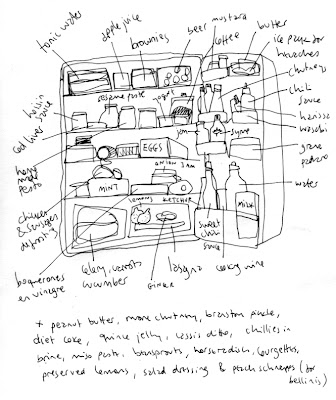 tonic water
apple juice
brownies
beer
mustard
coffee
butter
ice pack for
headaches
chutneys
chilli
sauce
harissa
wasabi
grana
padano
water
hoisin
sauce
Cod liver
sesame paste
yoget
jam
syrup
EGGS
home
made
pesto
onion jam
MINT
chicken
& sausages
defrosting
lemons
KETCHUP
MILK
boquerones
en vinagre
celery, carrots
cucumber
GINGER
lasagna
sweet
chilli
sauce
cooking wine
+ peanut butter, more chutney, branston pickle,
diet coke, quince jelly, cassis ditto, chillies in
brine, miso pesto, beansprouts, horseradish, courgettes,
preserved lemons, salad dressing & peach schnapps (for
bellinis)